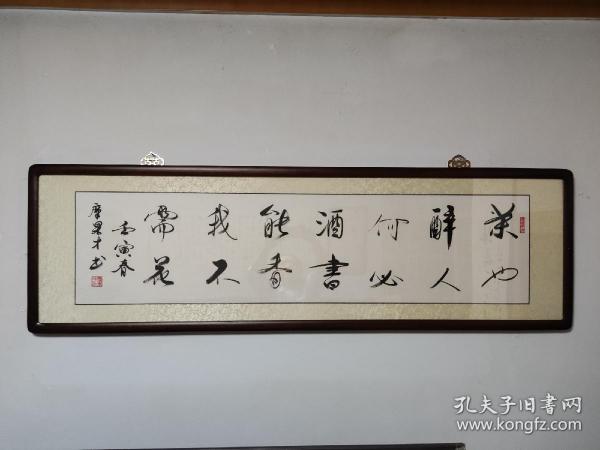 茶也
醉人
何必
酒书
能香
我不
需花
壬寅春
才书
孔夫子旧书网
www.kongfz.com